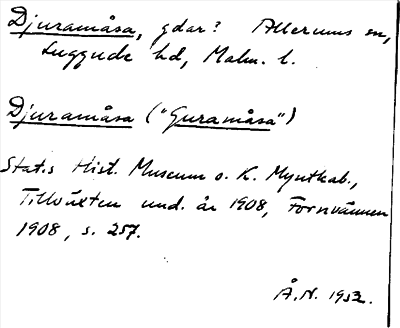 Djuramåsa, gdar? Allerums sn,
Luggude hd, Malm. l.
Djuramåsa ("Guramåsa")
Stat:s Hist. Museum o. K. Myntkab.,
Tillväxten und. år 1908, Fornvännen
1908, s. 257.
Å.N. 1932.